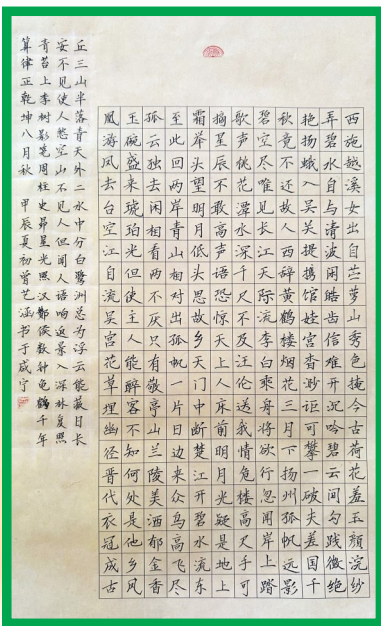 西施越溪女出自苎萝山秀色掩今古荷花羞玉颜浣纱
弄碧水自与清波闲皓齿信难开沉吟碧云间勾践徵绝
艳扬蛾入吴关提携馆娃宫杳渺讵可攀一破夫差国千
秋竟不还故人西辞黄鹤楼烟花三月下扬州孤帆远影
碧空尽唯见长江天际流李白乘舟将欲行忽闻岸上踏
歌声桃花潭水深千尺不及汪伦送我情危楼高尺手可
摘星辰不敢高声语恐惊天上人床前明月光疑是地上
霜举头望明月低头思故乡天门中断楚江开碧水东流
至此回两岸青山相对出孤帆一片日边来众鸟高飞尽
孤云独去闲相看两不厌只有敬亭山兰陵美酒郁金香
玉碗盛来琥珀光但使主人能醉客不知何处是他乡凤
凰游凤去台空江自流吴宫花草埋幽径晋代衣冠成古
丘三山半落青天外二水中分白鹭洲总为浮云能蔽日长
安不见使人愁空山不见人但闻人语响返景入深林复照
青苔上李树影笔周柱史昴星光照汉酂侯数钟龟鹤千年
算律正乾坤八月秋 甲辰夏初曾艺涵书于咸宁